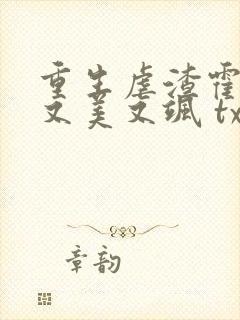 重生虐渣霍
又美又飒 tx
章韵